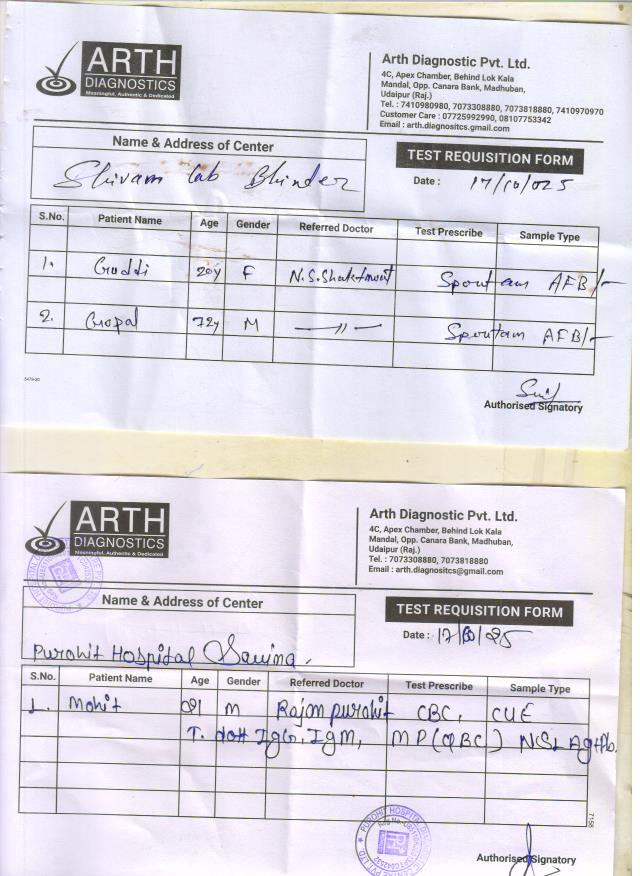 ARTH
DIAGNOSTICS
Meaningful, Authentic & Dedicated
Arth Diagnostic Pvt. Ltd.
4C, Apex Chamber, Behind Lok Kala
Mandal, Opp. Canara Bank, Madhuban,
Udaipur (Raj.)
Tel. : 7410980980, 7073308880, 7073818880, 7410970970
Customer Care : 07725992990, 08107753342
Email : arth.diagnositcs.gmail.com
Name & Address of Center
TEST REQUISITION FORM
Shivam lab Bhinder
Date : 17/10/025
S.No. Patient Name Age Gender Referred Doctor Test Prescribe Sample Type
1. Guddi 20y F N.S. Shaktawat Spoutam AFB/-
2. Gopal 72y M —〃— Spoutam AFB/-
5478-20
Authorised Signatory
ARTH
DIAGNOSTICS
Meaningful, Authentic & Dedicated
Arth Diagnostic Pvt. Ltd.
4C, Apex Chamber, Behind Lok Kala
Mandal, Opp. Canara Bank, Madhuban,
Udaipur (Raj.)
Tel. : 7073308880, 7073818880
Email : arth.diagnositcs@gmail.com
Name & Address of Center
TEST REQUISITION FORM
Date : 17/10/25
Purohit Hospital Savina,
S.No. Patient Name Age Gender Referred Doctor Test Prescribe Sample Type
1. Mohit 21 M Rajan purohit CBC, CUE
IgG, IgM, MP (QBC) NS1 Ag
7156
PUROHIT HOSPITAL
Authorised Signatory